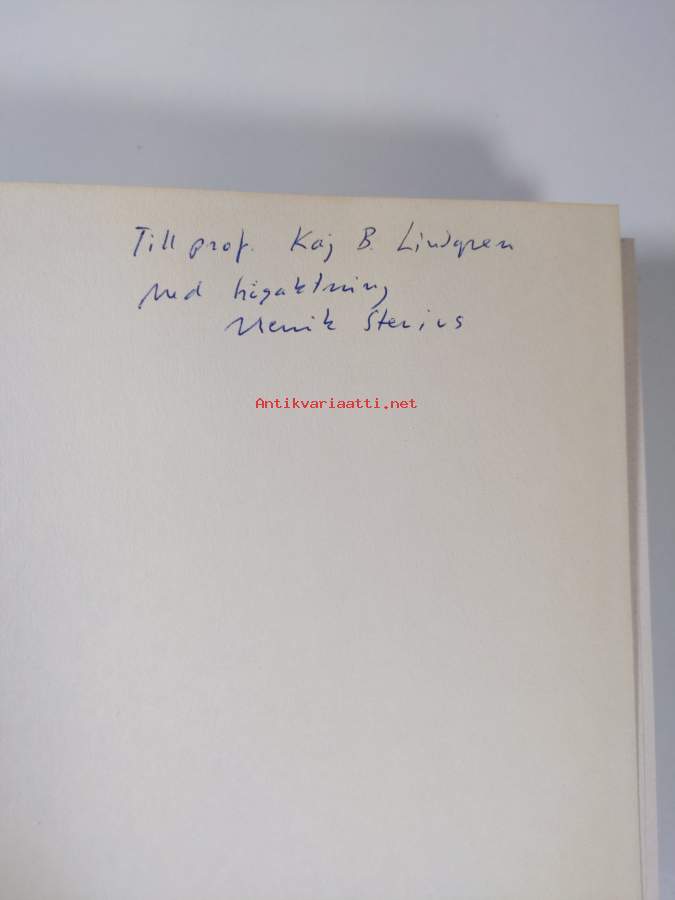 Till prof. Kaj B. Lindgren
Med högaktning
Henrik Stenius
Antikvariaatti.net